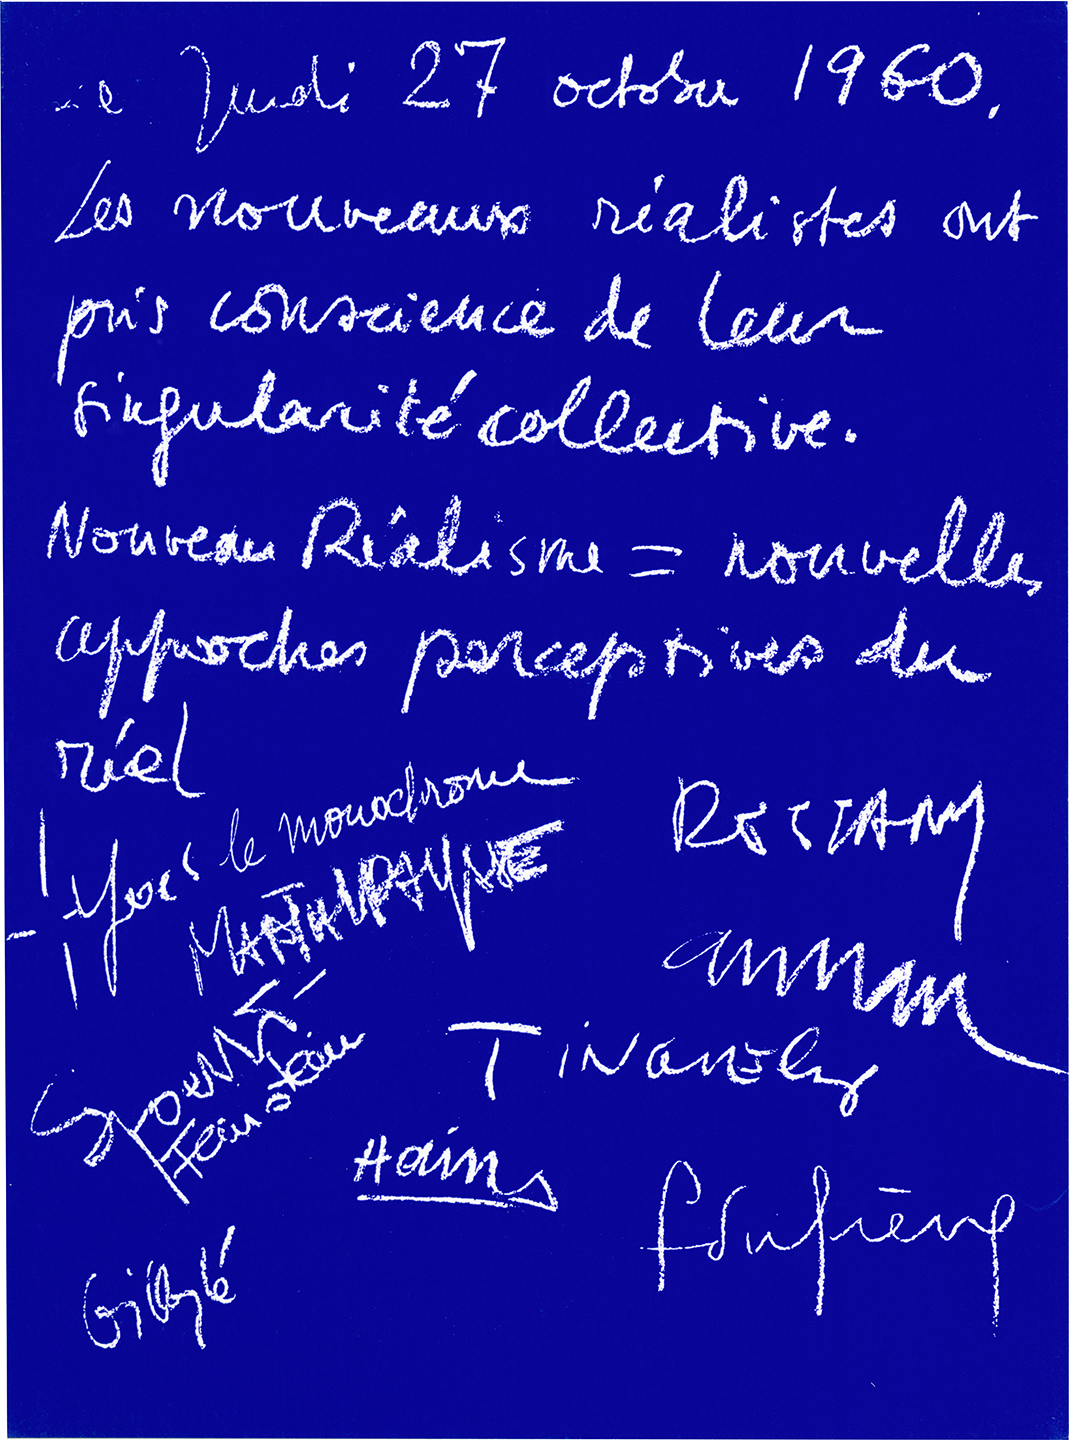 Le Jeudi 27 octobre 1960.
Les nouveaux réalistes ont
pris conscience de leur
singularité collective.
Nouveau Réalisme = nouvelles
approches perceptives du
réel
Yves le monochrome
RESTANY
MARTIAL RAYSSE
arman
SPOERRI
Feinstein
Tinguely
Hains
f Dufrêne
Villeglé